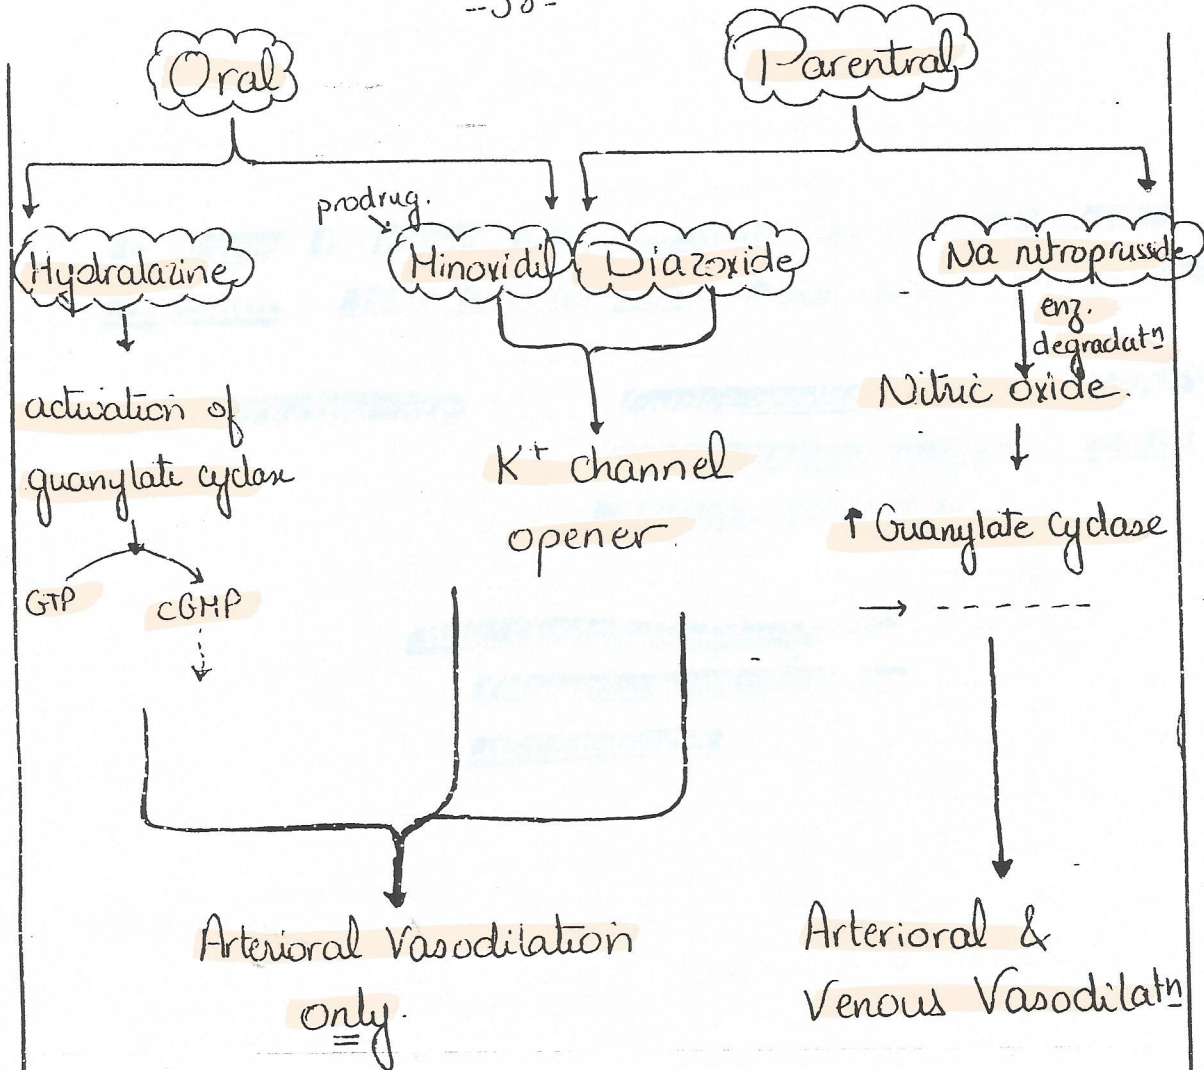 Oral
Parentral
prodrug.
Hydralazine
Minoxidil
Diazoxide
Na nitroprusside
enz.
degradatn
activation of
guanylate cyclase
GTP
cGMP
K+ channel
opener.
Nitric oxide.
↓
↑ Guanylate cyclase
→ ------
Arterioral Vasodilation
only.
Arterioral &
Venous Vasodilatn